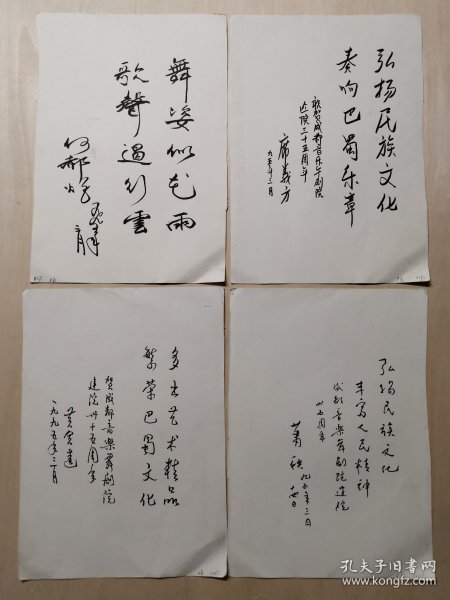 舞姿似花雨
歌聲遏行雲
何郝炬
弘扬民族文化
奏响巴蜀乐章
祝贺成都音乐舞剧院
建院三十五周年
席义方
九五年三月
多出艺术精品
繁荣巴蜀文化
贺成都音樂舞劇院
建院卅十五周年
一九九五年三月
弘扬民族文化
丰富人民精神
成都音樂舞剧院建院
卅五周年
萧
九五年三月
十四日
孔夫子旧书网
www.kongfz.com